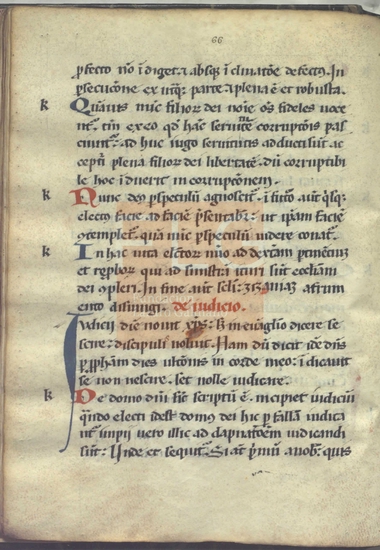 66
p̱fecto nō īdiget. ⁊ absq; īclinatōe defectus. In
p̱secucōne ex utrąq; parte plena ē et robusta.
k Quāuis nūc filioꝝ dei noīe oēs fideles uoce
ntꝰ. tm̄ ex eo qd̓ hāc seruitutē corruptōis pas
ciuntꝰ. ad huc iugo seruitutis adducti sūt ac
cepturi plenā filioꝝ dei libertatē. dū corruptibi
le hoc īduerit in corruptōnem.
k Nunc deꝰ p̱ speculū agnoscitꝰ. ī futo᷑ aut᷑ q̇sq;
electꝰ facie ad faciē p̄sentabitꝰ. ut ip̄am faciē
ꝯtempletꝰ. quā nūc p̱ speculū uidere conatꝰ.
k In hac uita electoꝝ nūo ad dextram ꝑtinēciuꝫ
et rep̱boꝝ qui ad sinistrā ituri sūt ecclīam
dei ꝯpleri. In fine aut᷑ sclī: zizaniaꝫ a frum
ento disiungi. de iudicio.
Judicij diē nouit xp̄s: sꝫ in euāglio dicere ⁊e
scire: discipuli noluit. Nam dum dicit idē dn̄s
ꝑ ꝓpham dies ultōnis in corde meo: īdicauit
se non nescire. set nolle indicare.
k De domo dn̄i sic̄ scriptū ē. incipiet iudiciū
qn̄do electi idest domꝰ dei hic ꝑ flagella iudica
ntꝰ. impij uero illic ad dāpnatōēm iudicandi
sūt: Unde et sequitꝰ: Si aūt p̄mū a nob̄: quis